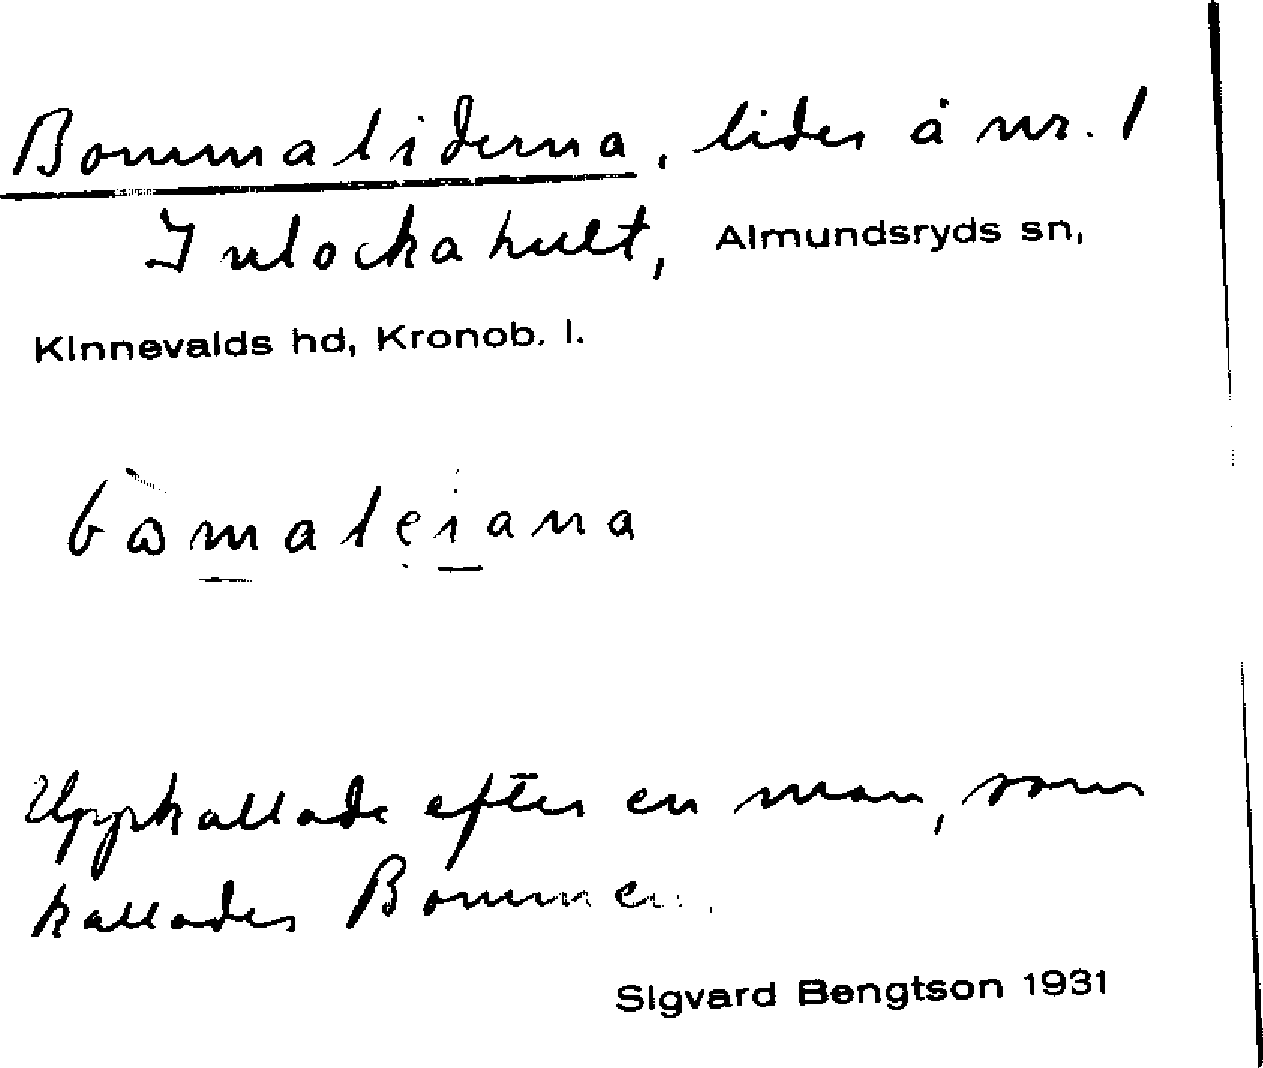 Bommaliderna, lider å nr. 1
Inlockahult, Almundsryds sn,
Kinnevalds hd, Kronob. l.
bòmaleiana
Uppkallade efter en man, som
kallades Bommen.
Sigvard Bengtson 1931